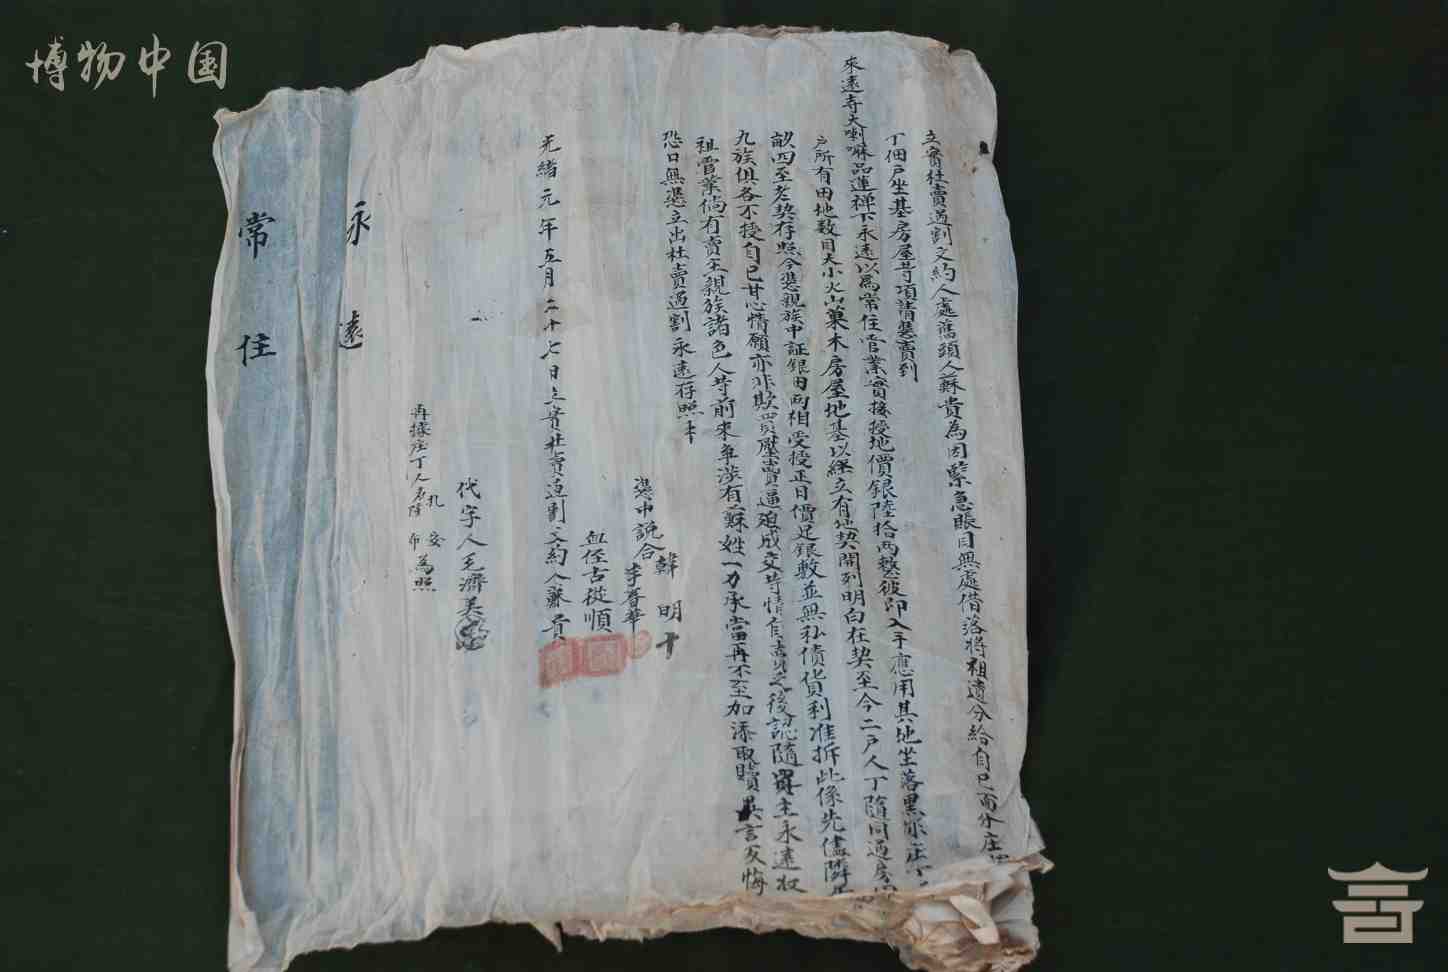 博物中国
立實杜賣過割文約人處舊頭人蘇貴為因緊急賬目無處借落將祖遺分給自己而分庄
丁佃戶坐基房屋等項請憑賣到
來遠寺大喇嘛品蓮禅下永遠以為常住管業實接授地價銀陸拾両整彼即入手應用其地坐落黑
戶所有田地数目大小火山菓木房屋地基以經立有地契開列明白在契至今二戶人丁隨同過房
畝四至老契存照今憑親族中証銀田両相受授正日價足銀数並無私債貨利准拆此係先儘隣
九族俱各不授自己甘心情願亦非欺買壓賣逼廹成交等情自賣之後認隨買主永遠收
祖管業倘有賣主親族諸色人等前來争渉有蘇姓一力承當再不至加添取贖異言反悔
恐口無憑立出杜賣過割永遠存照
憑中說合
韓明十
李春華
血侄古從順
光緒元年五月二十七日立實杜賣過割文約人蘇貴
代字人毛濟美
再據庄丁人名
為照
永遠
常住